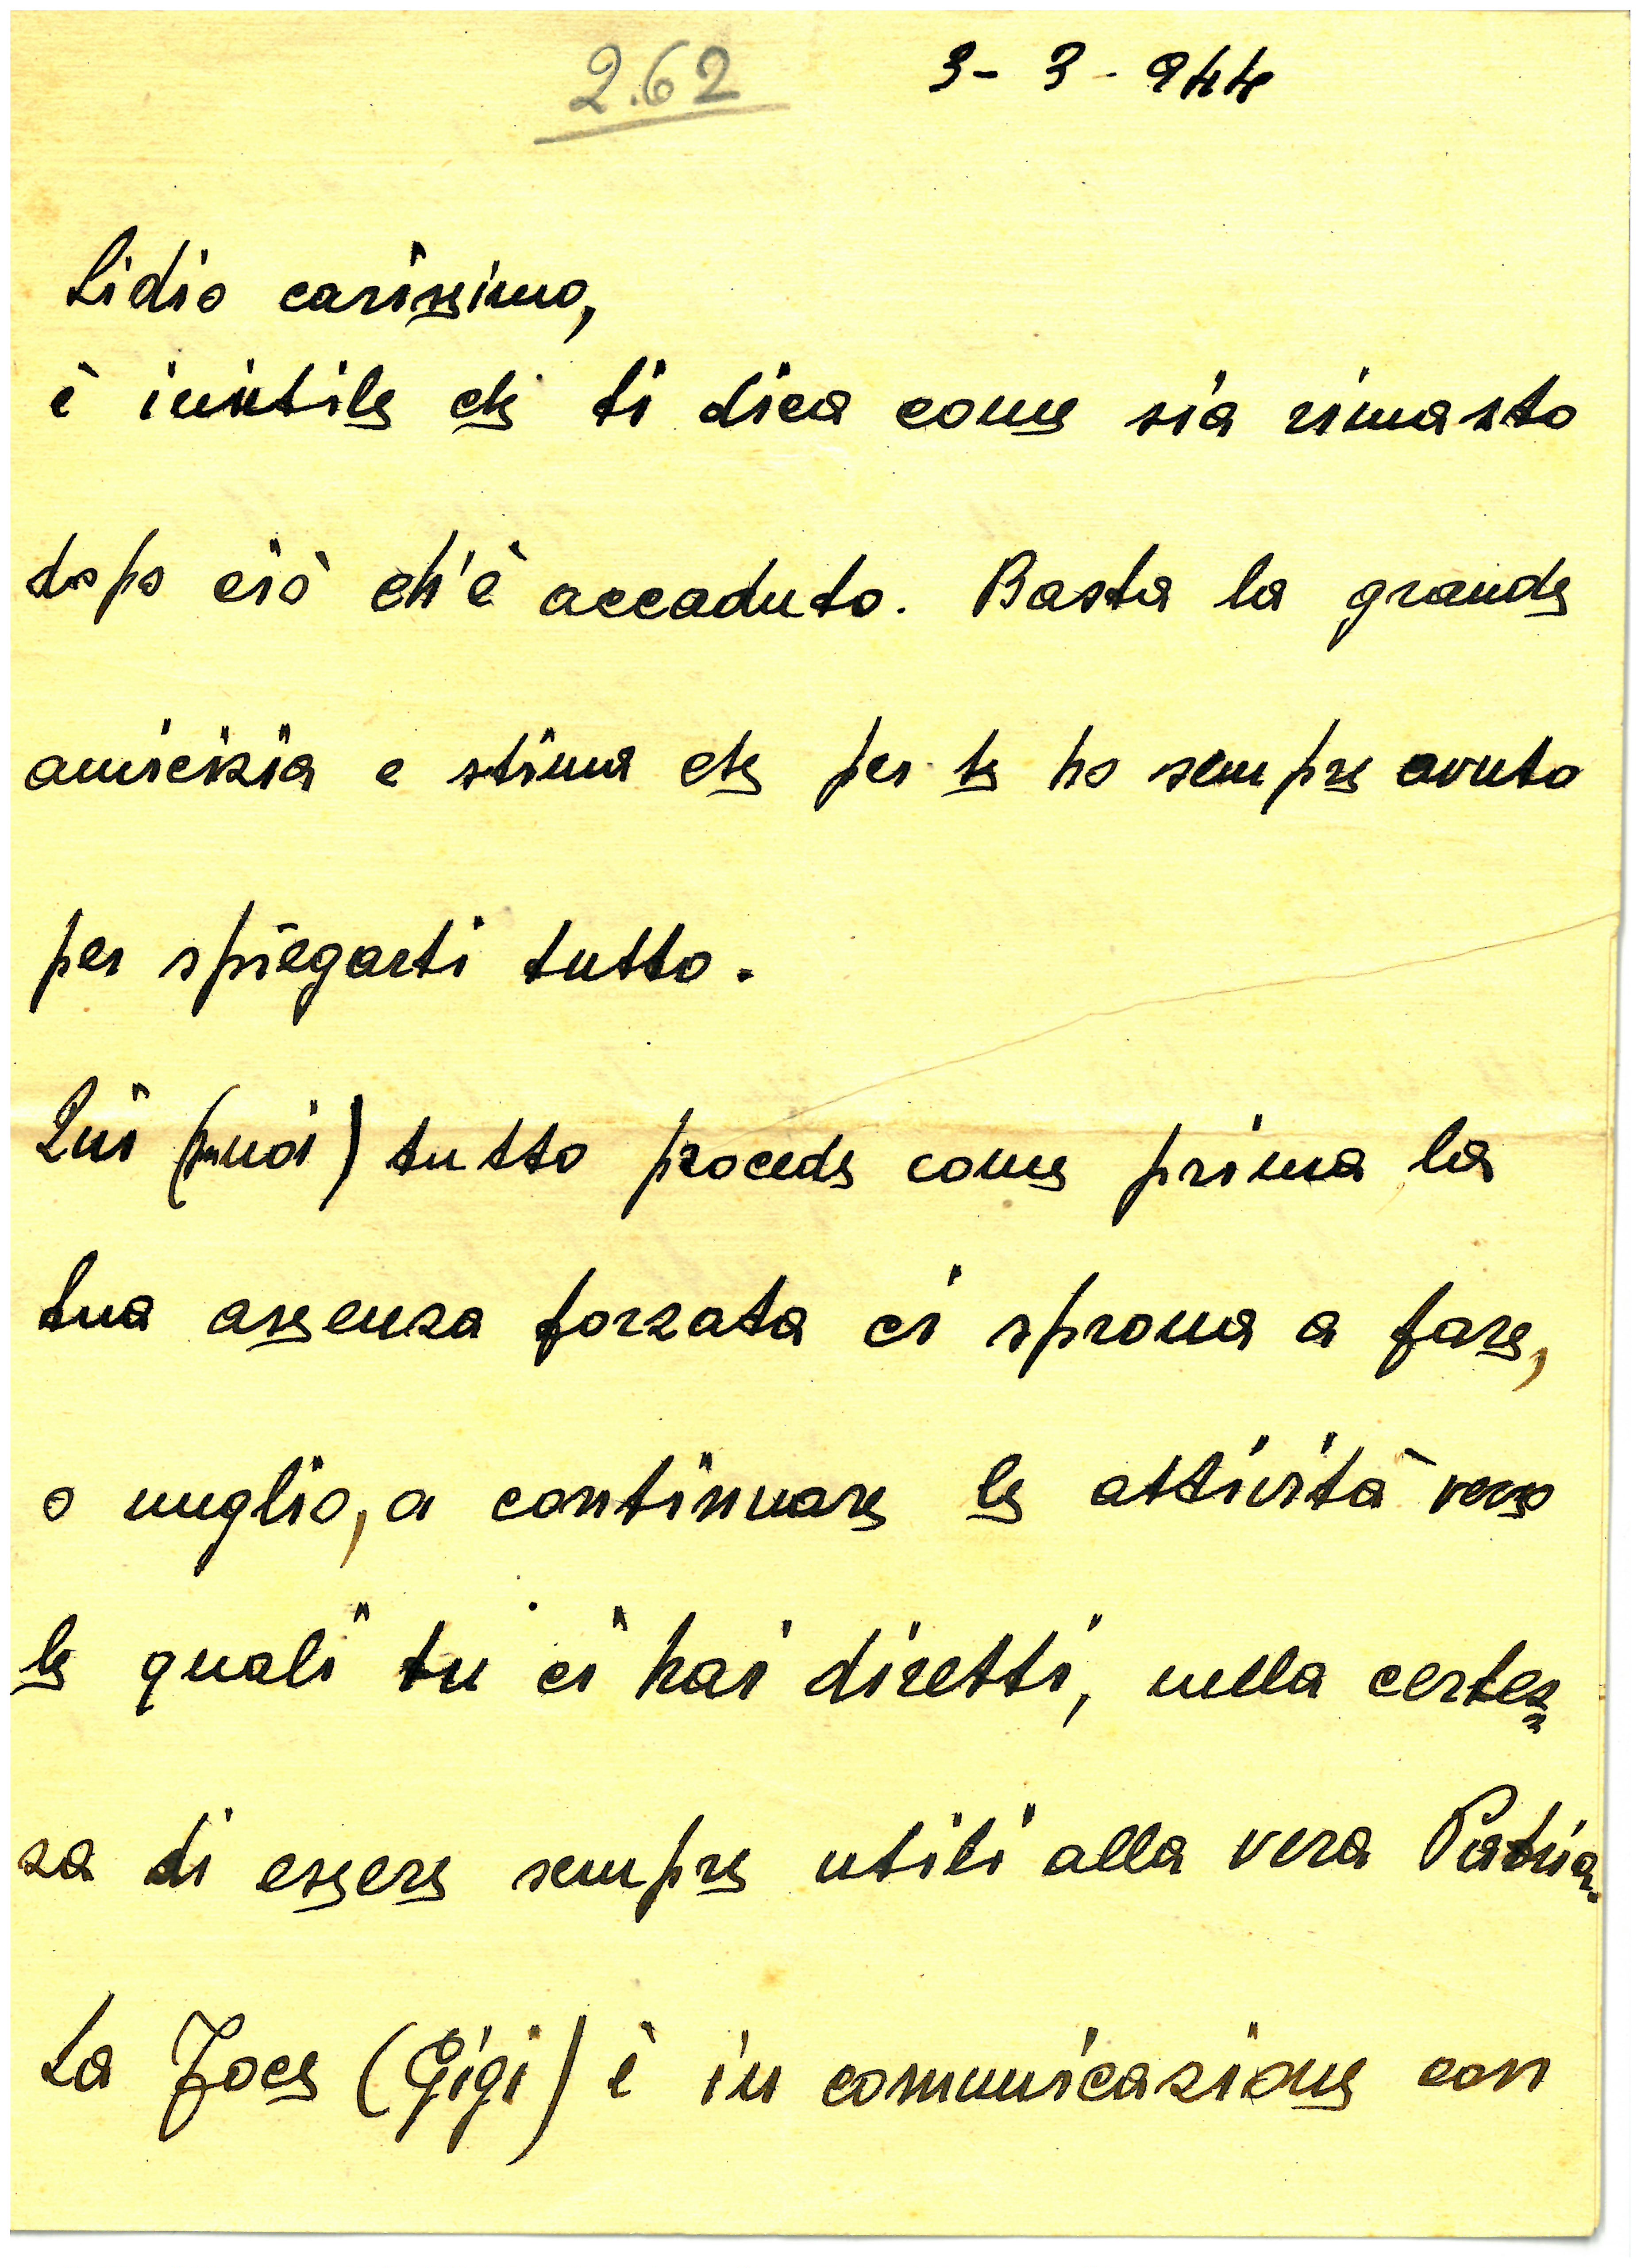 2.62 3-3-944
Lidio carissimo,
è inutile che ti dica come sia rimasto
dopo ciò ch'è accaduto. Basta la grande
amicizia e stima che per te ho sempre avuto
per spiegarti tutto.
Qui tutto procede come prima la
tua assenza forzata ci sprona a fare,
o meglio, a continuare le attività verso
le quali tu ci hai diretti, nella certez=
za di essere sempre utili alla vera Patria.
La Foce (Gigi) è in comunicazione con